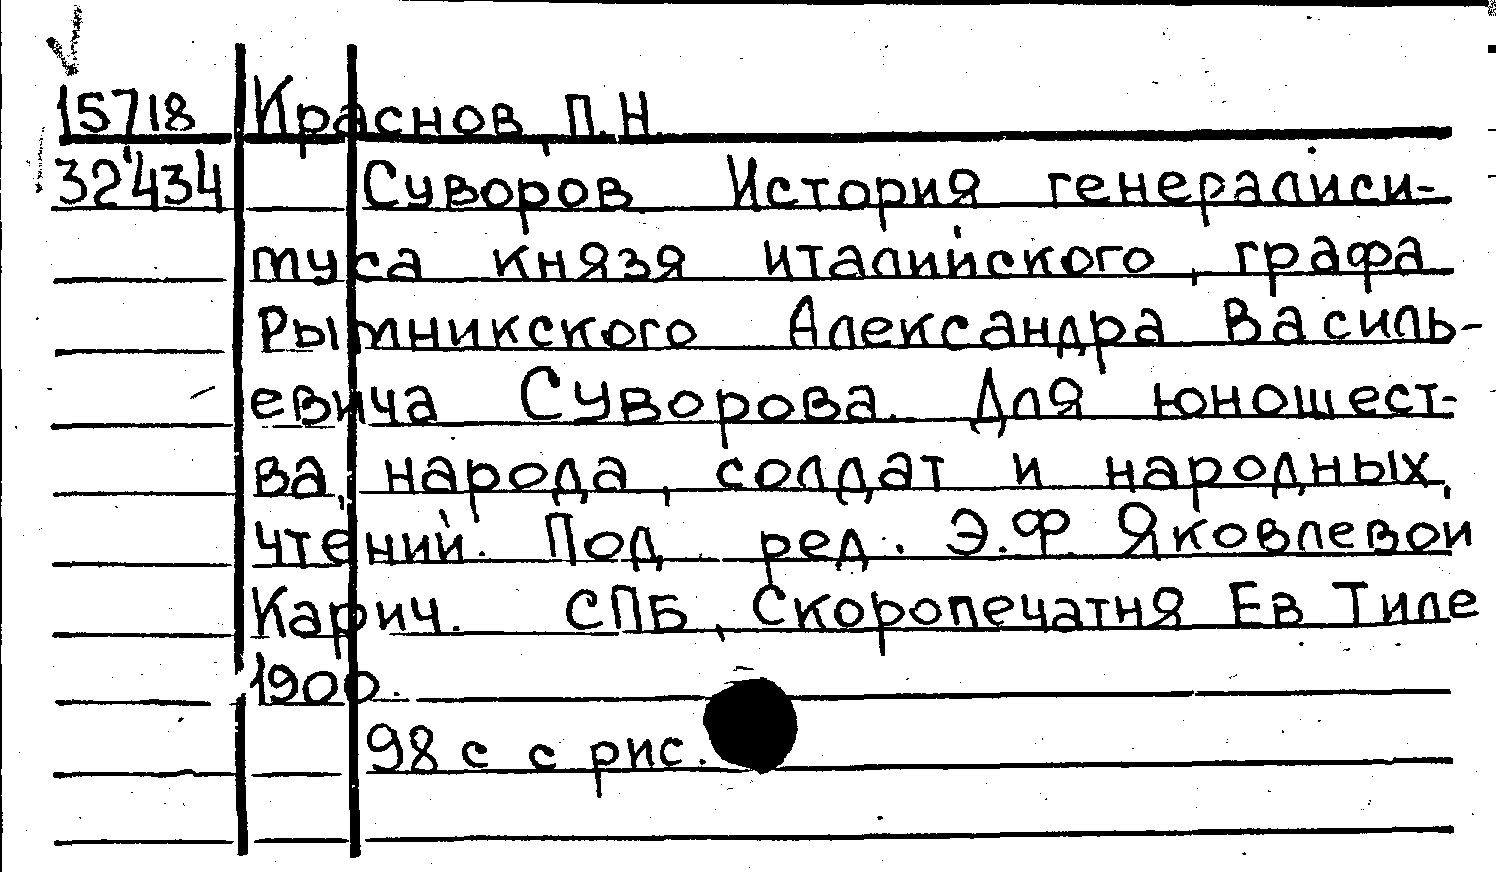 15718 Краснов, П.Н.
32434 Суворов История генералиси-
муса князя италийского, графа
Рымникского Александра Василь-
евича Суворова. Для юношест-
ва, народа, солдат и народных,
чтений. Под ред. Э.Ф. Яковлевой
Карич. СПБ, Скоропечатня Ев Тиле
1900.
98 с с рис.